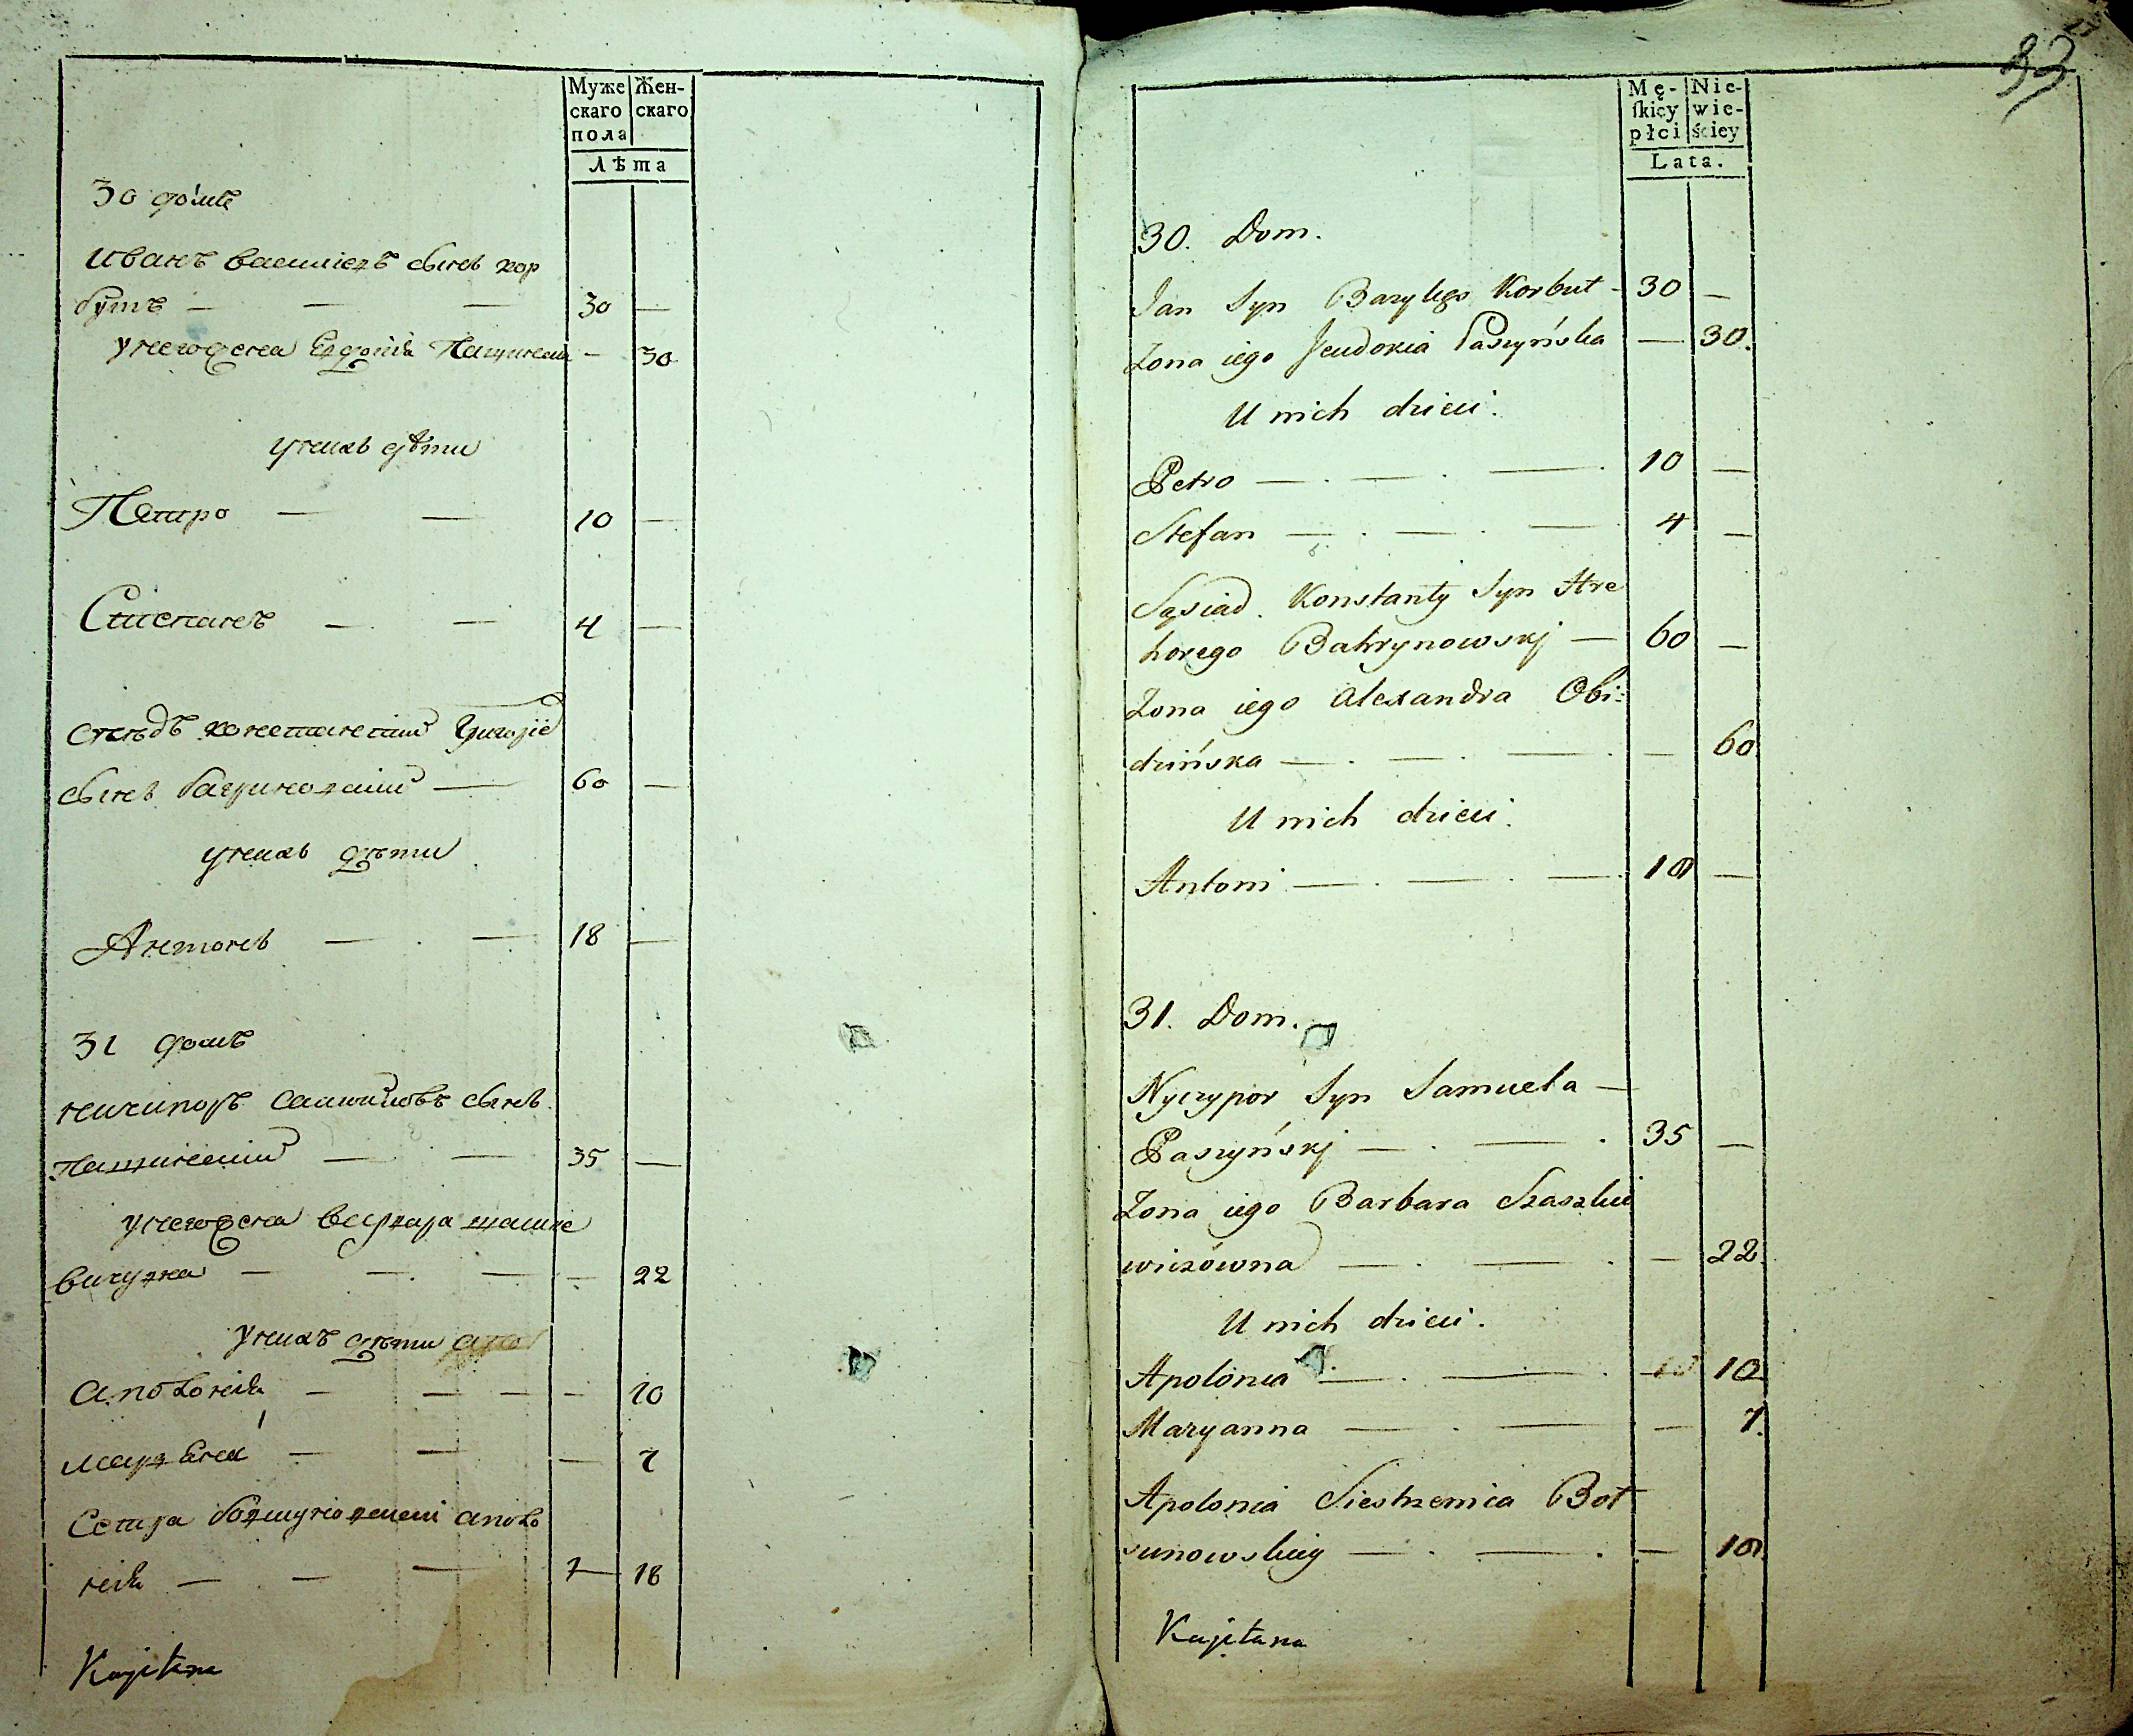 Муже
скаго
пола
Жен-
скаго
Лѣта
30 домъ
Иванъ василіевъ сынъ кор
бутъ — — — 30 —
унегожена Евдокія Пащинска — 30
унихъ дѣти
Петро — — 10 —
Степанъ — — 4 —
сусѣдъ константій Григоріе
сынъ багриновскій — 60 —
унихъ дѣти
Антонъ — — 18 —
31 домъ
ничипоръ самуиловъ сынъ
пащинскій — — 35 —
унегожена варвара шашке
вичувна — — — — 22
унихъ дѣти
аполонія — — — — 10
маріянна — — — 7
Сестра аполо
нія — — — — 18
Kajetana
33
Mę-
ſkiey
płci
Nie-
wie-
ściey
Lata.
30. Dom.
Jan Syn Bazylego Korbut - 30 —
Zona iego Jeudokia Paszyńska — 30.
U nich dzieci.
Petro — . — . — . 10 —
Stefan — . — . — 4 —
Sąsiad. Konstanty Syn Hre
horego Bahrynowskj — 60 —
Zona iego Alexandra Obi=
dzińska — . — . — . — 60
U nich dzieci.
Antoni — . — . — . 18 —
31. Dom.
Nyczypor Syn Samuela —
Paszyńskj — . — . 35 —
Zona iego Barbara Szaszkie
wiczówna — . — . — 22.
U nich dzieci.
Apolonia — . — . — 10
Maryanna — . — — 7.
Apolonia Siestrzenica Bot
sunowskiey — . — . — 18.
Kajetana